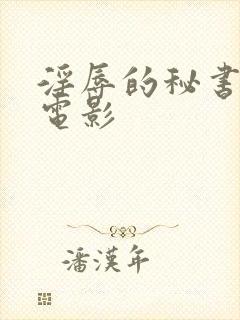 淫辱的秘書
電影
潘漢年